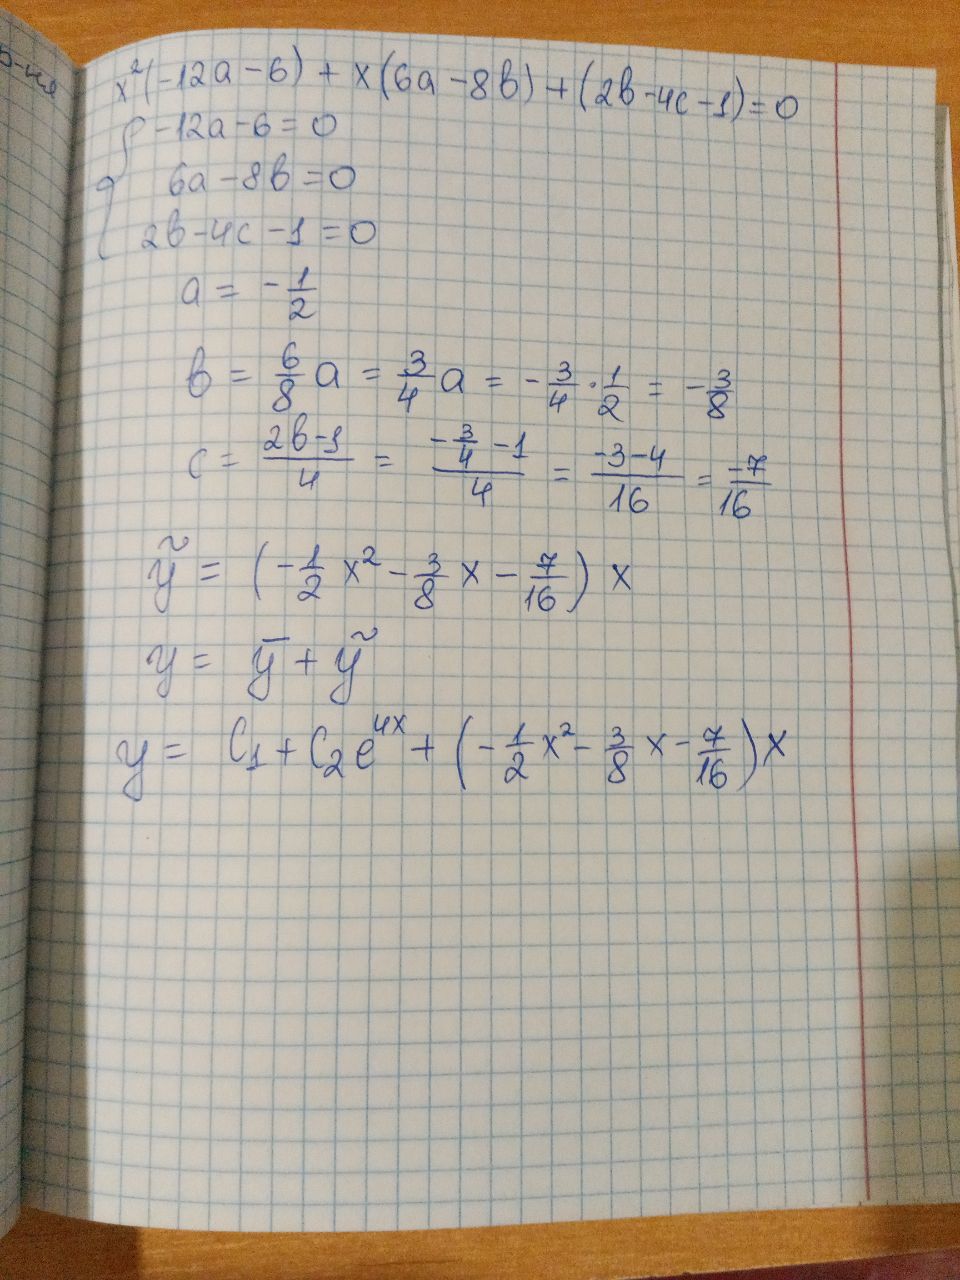 x²(-12a-6) + x(6a-8в)+(2в-4c-1)=0
{ -12a-6=0
6a-8в=0
2в-4c-1=0
a = -1/2
в = 6/8 a = 3/4 a = -3/4 · 1/2 = -3/8
c = (2в-1)/4 = (-3/4 -1)/4 = (-3-4)/16 = -7/16
ỹ = (-1/2 x² - 3/8 x - 7/16) x
y = ȳ + ỹ
y = C₁ + C₂e^4x + (-1/2 x² - 3/8 x - 7/16) x